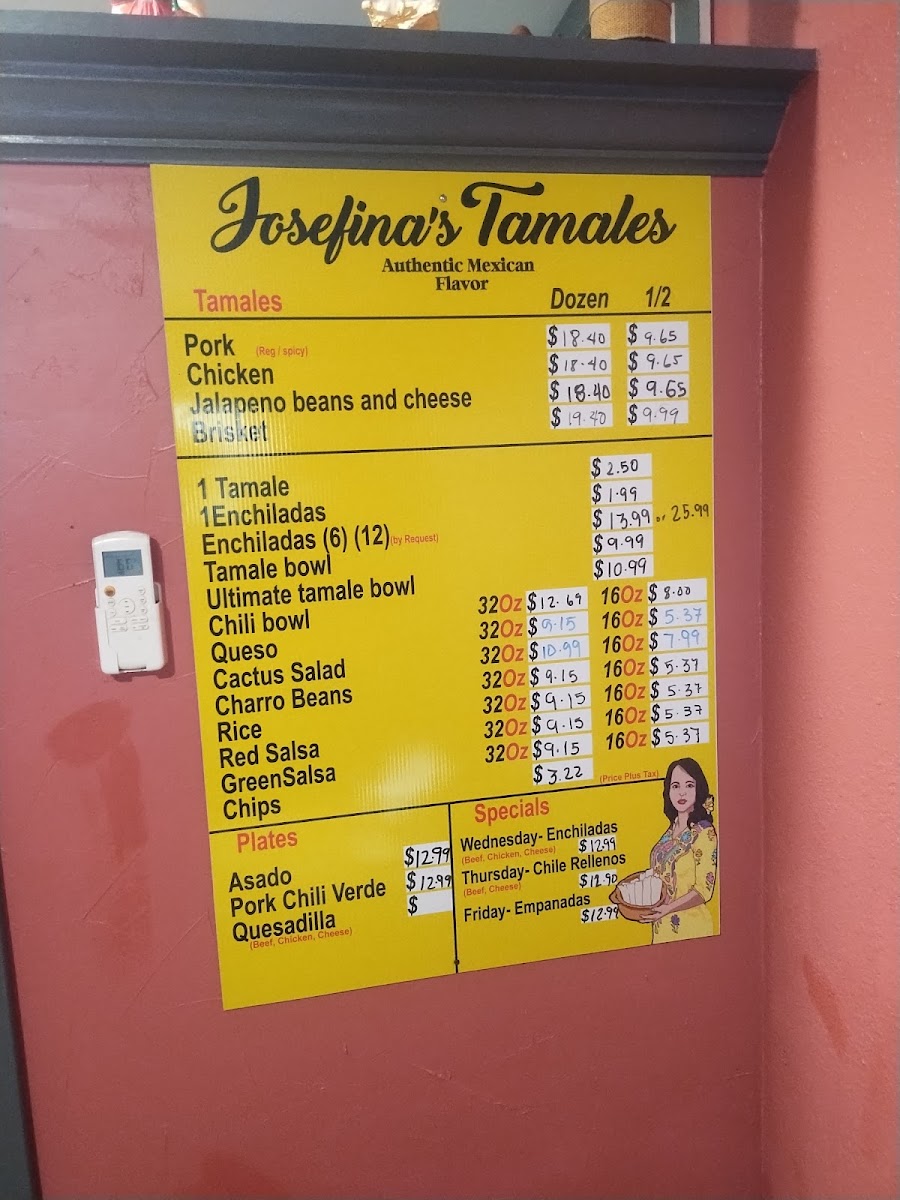 Josefina's Tamales
Authentic Mexican
Flavor
Tamales Dozen 1/2
Pork (Reg / spicy) $18.40 $9.65
Chicken $18.40 $9.65
Jalapeno beans and cheese $18.40 $9.65
Brisket $19.40 $9.99
1 Tamale $2.50
1Enchiladas $1.99
Enchiladas (6) (12)(by Request) $13.99 or 25.99
Tamale bowl $9.99
Ultimate tamale bowl $10.99
Chili bowl 32Oz $12.69 16Oz $8.00
Queso 32Oz $9.15 16Oz $5.37
Cactus Salad 32Oz $10.99 16Oz $7.99
Charro Beans 32Oz $9.15 16Oz $5.37
Rice 32Oz $9.15 16Oz $5.37
Red Salsa 32Oz $9.15 16Oz $5.37
GreenSalsa 32Oz $9.15 16Oz $5.37
Chips $3.22 (Price Plus Tax)
Plates
Asado $12.99
Pork Chili Verde $12.99
Quesadilla $
(Beef, Chicken, Cheese)
Specials
Wednesday- Enchiladas
(Beef, Chicken, Cheese) $12.99
Thursday- Chile Rellenos
(Beef, Cheese) $12.90
Friday- Empanadas
$12.99